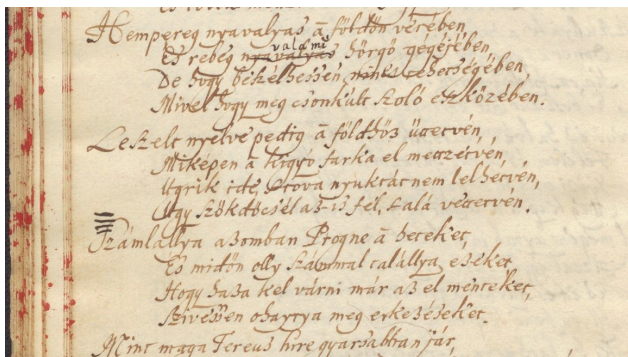 Hempereg nyavalyas à földön vérében,
És rebeg valami hörgő gegéjében,
De hogy beszélhessen, nincs tehetségében,
Mivel hogy meg csonkúlt szoló eszközében.
Leszelt nyelve pedig à földhöz ütetvén,
Miképen a kigyó farka el metzetvén,
Ugrik ide, s tova nyuktát nem lelhetvén,
Ugy szökdöcsél az-is fel, s alá vettetvén.
Számlállya azomban Progne à heteket,
És midőn olly számmal talállya ezeket
Hogy haza kel várni már az el menteket,
Szivessen ohaytya meg erkezéseket.
Mint maga Tereus hire gyarsabban jár,